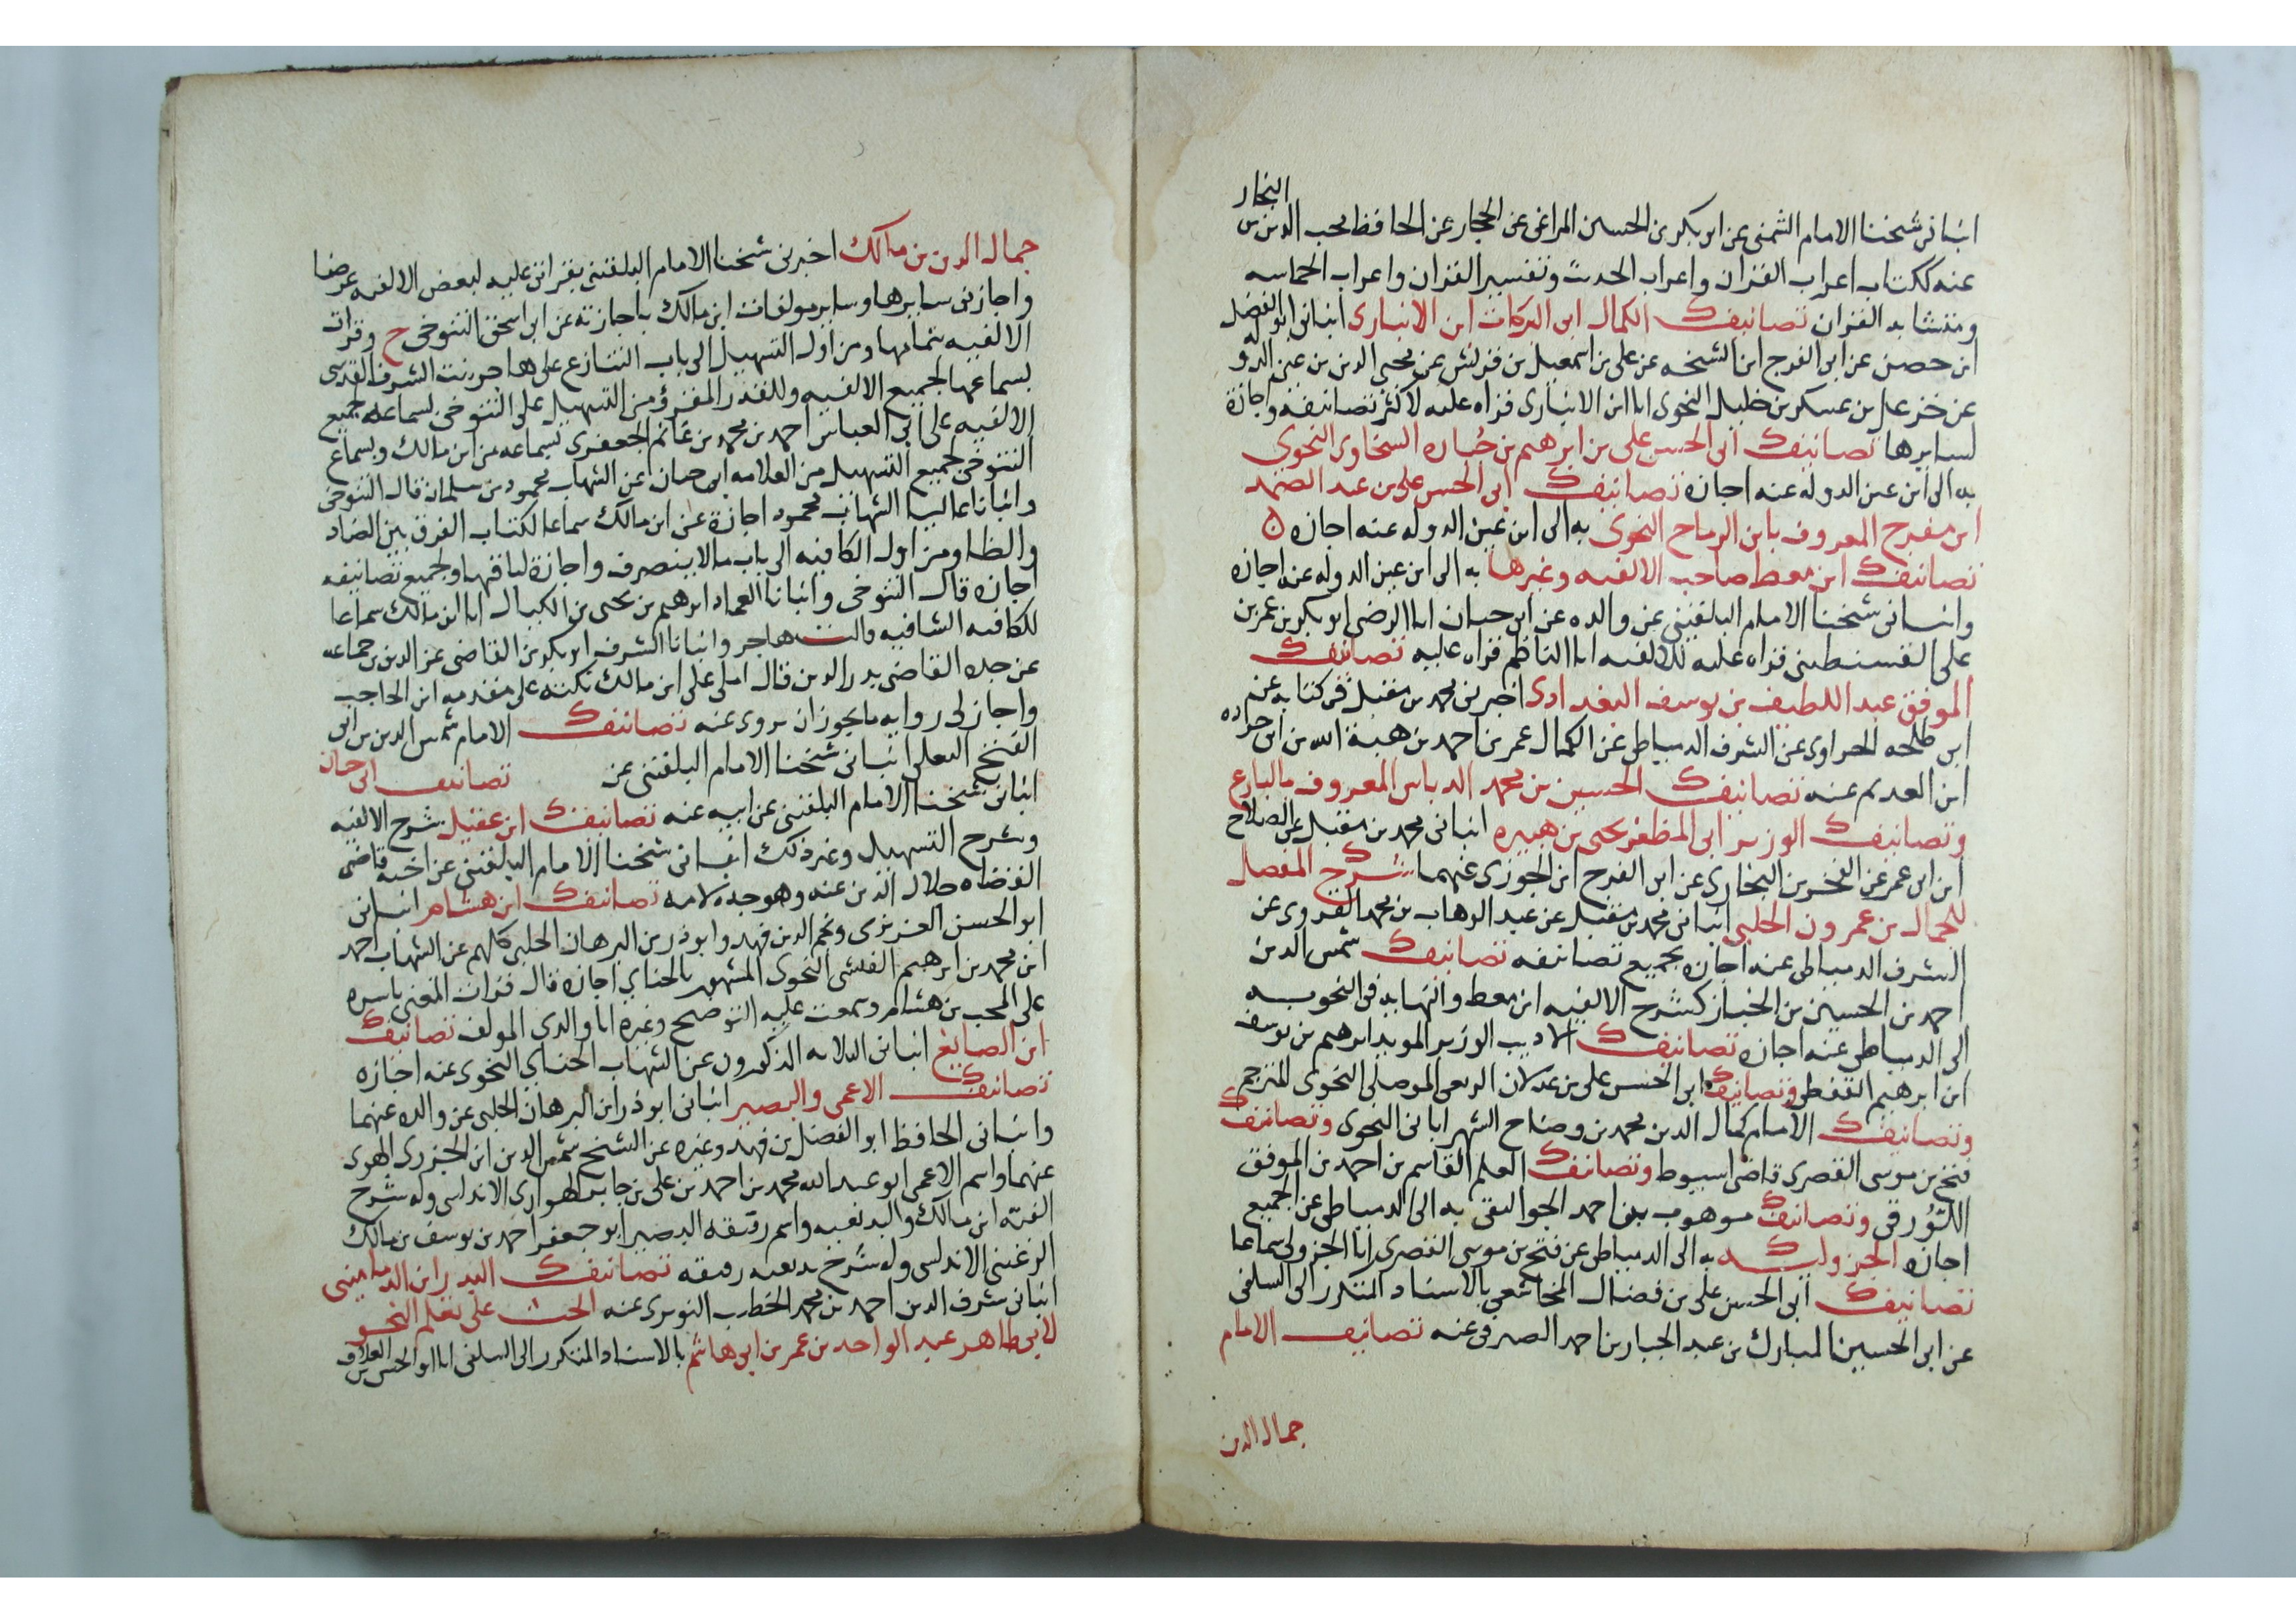 انبانى شيخنا الامام الشمنى عن ابى بكر بن الحسين المراغى عن الحجار عن الحافظ محب الدين بن النجار
عنه ككتاب اعراب القران واعراب الحديث وتفسير القران واعراب الحماسه
ومتشابه القران تصانيف الكمال ابى البركات ابن الانبارى انبانى ابو الفضل
ابن حصن عن ابى الفرج ابن الشيخه عن على بن اسمعيل بن قريش عن محيى الدين بن عين الدوله
عن خزعل بن عسكر بن خليل النحوى انا ابن الانبارى قراه عليه لاكثر تصانيفه واجازة
لسايرها تصانيف ابى الحسن على بن ابرهيم بن جُباره السخاوى النحوى
به الى ابن عين الدوله عنه اجازه تصانيف ابى الحسن على بن عبد الصمد
ابن مفرح المعروف بابن الرماح النحوى به الى ابن عين الدوله عنه اجازه ن
تصانيف ابن معط صاحب الالفيه وغيرها به الى ابن عين الدوله عنه اجازه
وانبانى شيخنا الامام البلقينى عن والده عن ابى حيان انا الرضى ابو بكر بن عمر بن
على القسنطينى قراه عليه للالفيه انا الناظم قراه عليه تصانيف
الموفق عبد اللطيف بن يوسف البغدادى اخبرنى محمد بن مقبل فى كتابه عن
ابن طلحه الحراوى عن الشرف الدمياطى عن الكمال عمر بن احمد بن هبة الله بن ابى جراده
ابن العديم عنه تصانيف الحسين بن محمد الدباس المعروف بالبارع
وتصانيف الوزير ابى المظفر يحيى بن هبيره انبانى محمد بن مقبل عن الصلاح
ابن ابى عمر عن الفخر بن البخارى عن ابى الفرج ابن الجوزى عنهما شرح المفصل
للجمال بن عمرون الحلبى انبانى محمد بن مقبل عن عبد الوهاب بن محمد القروى عن
الشرف الدمياطى عنه اجازه بجميع تصانيفه تصانيف شمس الدين
احمد بن الحسين بن الخباز كشرح الالفيه ابن معط والنهايه فى النحو به
الى الدمياطى عنه اجازه تصانيف الاديب الوزير المويد ابرهيم بن يوسف
ابن ابرهيم القفطى وتصانيف ابى الحسن على بن عدلان الربعى الموصلى النحوى المترجم
وتصانيف الامام كمال الدين محمد بن وضاح الشهرابانى النحوى وتصانيف
فتح بن موسى القصرى قاضى اسيوط وتصانيف العلم القاسم بن احمد بن الموفق
اللُّورقى وتصانيف موهوب بن احمد الجواليقى به الى الدمياطى عن الجميع
اجازه الجزوليه به الى الدمياطى عن فتح بن موسى القصرى انا الجزولى سماعا
تصانيف ابى الحسن على بن فضال المجاشعى بالاسناد المتكرر الى السلفى
عن ابى الحسين المبارك بن عبد الجبار بن احمد الصيرفى عنه تصانيف الامام
جمال الدين
جمال الدين بن مالك اخبرنى شيخنا الامام البلقينى بقراتى عليه لبعض الالفيه عرضا
واجازنى سايرها وساير مولفات ابن مالك باجازته عن ابى اسحق التنوخى ح وقرات
الالفيه بتمامها ومن اول التسهيل الى باب التنازع على هاجر بنت الشرف القدسى
بسماعها لجميع الالفيه وللقدر المقرؤ من التسهيل على التنوخى بسماعه جميع
الالفيه على ابى العباس احمد بن محمد بن غانم الجعفرى بسماعه من ابن مالك وبسماع
التنوخى لجميع التسهيل من العلامه ابى حيان عن الشهاب محمود بن سلمان قال التنوخى
وانبانا عاليا الشهاب محمود اجازة عن ابن مالك سماعا لكتاب الفرق بين الضاد
والظا ومن اول الكافيه الى باب مالاينصرف واجازة لباقيها ولجميع تصانيفه
اجازه قال التنوخى وانبانا العماد ابرهيم بن يحيى بن الكيال انا ابن مالك سماعا
للكافيه الشافيه قالت هاجر وانبانا الشرف ابو بكر بن القاضى عز الدين بن جماعه
عن جده القاضى بدر الدين قال املى على ابن مالك نكته على مقدمه ابن الحاجب
واجازلى روايه مايجوزان يروى عنه تصانيف الامام شمس الدين بن ابى
الفتح البعلى انبانى شيخنا الامام البلقينى عن تصانيف ابى حيان
انبانى شيخنا الامام البلقينى عن ابيه عنه تصانيف ابن عقيل شرح الالفيه
وشرح التسهيل وغير ذلك انبانى شيخنا الامام البلقينى عن اخيه قاضى
القضاه جلال الدين عنه وهو جده لامه تصانيف ابن هشام انبانى
ابو الحسن العزيزى ونجم الدين فهد وابو ذر بن البرهان الحلبى كلهم عن الشهاب احمد
ابن محمد بن ابرهيم الفيشى النحوى المشهور بالحناى اجازه قال قرات المغنى باسره
على المحب بن هشام وسمعت عليه التوضيح وغيره انا والدى المولف تصانيف
ابن الصايغ انبانى الثلاثه المذكورون عن الشهاب الحناى النحوى عنه اجازه
تصانيف الاعمى والبصير انبانى ابو ذر ابن البرهان الحلبى عن والده عنهما
وانبانى الحافظ ابو الفضل بن فهد وغيره عن الشيخ شمس الدين ابن الجزرى
عنهما واسم الاعمى ابو عبد الله محمد بن احمد بن على بن جابر الهوارى الاندلسى وله شرح
الفية ابن مالك والبديعيه واسم رفيقه البصير ابو جعفر احمد بن يوسف بن مالك
الرعينى الاندلسى وله شرح بديعيه رفيقه تصانيف البدر ابن الدمامينى
انبانى شرف الدين احمد بن محمد الخطيب النويرى عنه الحث على تعلم النحو
لابى طاهر عبد الواحد بن عمر بن ابى هاشم بالاسناد المتكرر الى السلفى انا ابو الحسن بن العلاف